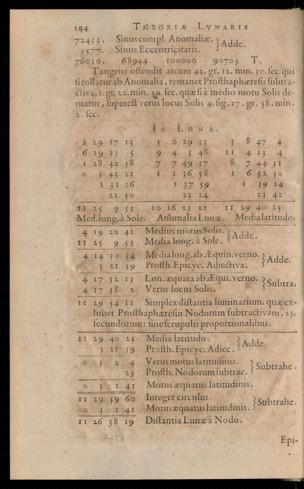 144 THEORIÆ LVNARIS
72433. Sinus compl. Anomaliæ. } Adde.
3577. Sinus Eccentricitatis.
76010. 68944 100000 90703 T.
Tangens ostendit arcum 42. gr. 12. min. 30. sec. qui
si tollatur ab Anomalia, remanet Prosthaphæresis subtra-
ctiva, 1. gr. 22. min. sec. quæ si à medio motu Solis de-
matur, superest verus locus Solis 4. sig. 17. gr. 58. min.
2. sec.
IN LUNA.
2 29 17 15 5 0 29 35 3 8 47 4
6 19 33 5 9 4 5 48 11 4 13 4
1 28 42 58 7 7 49 37 8 7 44 31
0 5 43 21 1 1 56 58 1 6 52 50
1 31 26 1 37 59 1 39 14
21 50 23 24 1 42
11 25 9 53 10 16 23 21 11 29 40 25
Med. long. à Sole. Anomalia Lunæ. Media latitudo.
4 19 20 41 Medius motus Solis. } Adde.
11 25 9 53 Media long. à Sole.
4 14 30 34 Media long. ab Æquin. verno. } Adde.
3 21 39 Prosth. Epicyc. Adiectiva.
4 17 52 13 Lon. æquata ab Æqui. verno. } Subtra.
4 17 58 2 Verus locus Solis.
11 29 54 11 Simplex distantia luminarium, quæ ex-
hibet Prosthaphæresin Nodorum subtractivam, 23.
secundorum: sine scrupulis proportionalibus.
11 29 40 25 Media latitudo. } Adde.
3 21 39 Prosth. Epicyc. Adiec.
0 3 2 4 Verus motus latitudinis. } Subtrahe.
23 Prosth. Nodorum subtrac.
0 3 1 41 Motus æquatus latitudinis.
11 29 59 60 Integer circulus. } Subtrahe.
0 3 1 41 Motus æquatus latitudinis.
11 26 58 19 Distantia Lunæ à Nodo.
Epi-